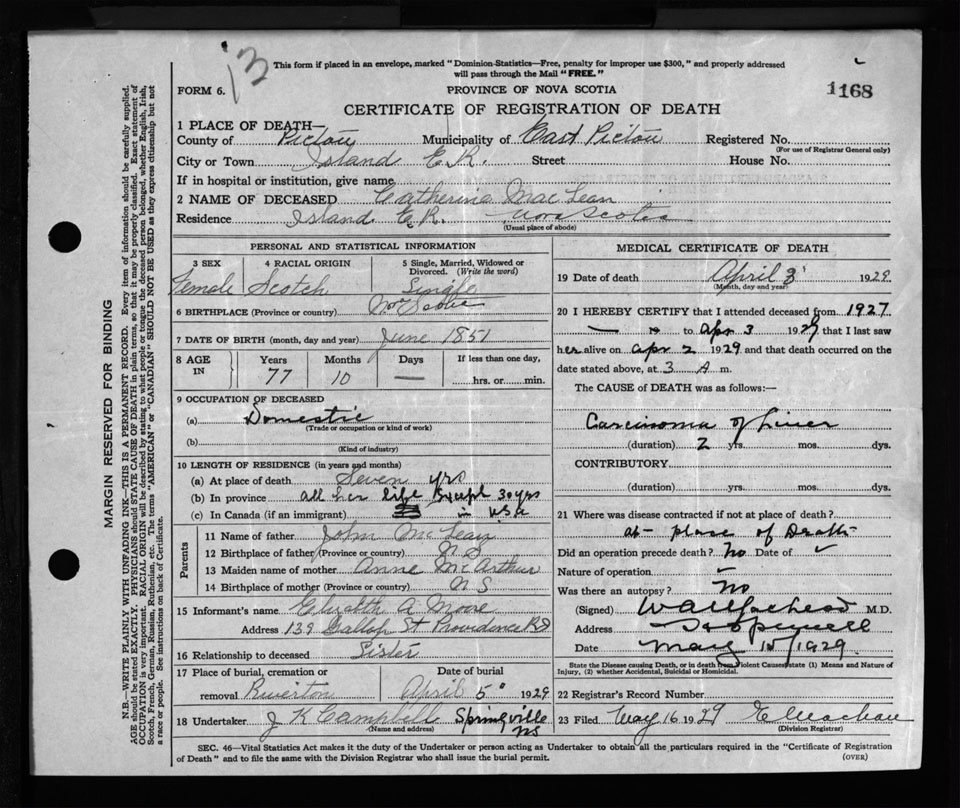 13
This form if placed in an envelope, marked "Dominion-Statistics—Free, penalty for improper use $300," and properly addressed
will pass through the Mail "FREE."
FORM 6. PROVINCE OF NOVA SCOTIA 1168
CERTIFICATE OF REGISTRATION OF DEATH
1 PLACE OF DEATH—
County of Pictou Municipality of East Pictou Registered No.
(For use of Registrar General only)
City or Town Island E. R. Street House No.
If in hospital or institution, give name
2 NAME OF DECEASED Catherine MacLean
Residence Island E. R. Nova Scotia
(Usual place of abode)
PERSONAL AND STATISTICAL INFORMATION
3 SEX Female
4 RACIAL ORIGIN Scotch
5 Single, Married, Widowed or Divorced. (Write the word)
Single
6 BIRTHPLACE (Province or country) Nov Scotia
7 DATE OF BIRTH (month, day and year) June 1851
8 AGE IN Years Months Days If less than one day,
77 10 — hrs. or min.
9 OCCUPATION OF DECEASED
(a) Domestic
(Trade or occupation or kind of work)
(b)
(Kind of industry)
10 LENGTH OF RESIDENCE (in years and months)
(a) At place of death Seven yrs
(b) In province all her life Except 30 yrs
(c) In Canada (if an immigrant) in USA
Parents
11 Name of father John McLean
12 Birthplace of father (Province or country) N S
13 Maiden name of mother Anne McArthur
14 Birthplace of mother (Province or country) N S
15 Informant's name Elizabth A Moore
Address 139 Gallop St Providence R.I.
16 Relationship to deceased Sister
17 Place of burial, cremation or Date of burial
removal Riverton April 5" 1929
18 Undertaker J K Campbell Springville NS
(Name and address)
MEDICAL CERTIFICATE OF DEATH
19 Date of death April 3 1929
(Month, day and year)
20 I HEREBY CERTIFY that I attended deceased from 1927
to Apr 3 1929 that I last saw
her alive on Apr 2 1929 and that death occurred on the
date stated above, at 3 A m.
The CAUSE of DEATH was as follows:—
Carcinoma of Liver
(duration) 2 yrs. mos. dys.
CONTRIBUTORY
(duration) yrs. mos. dys.
21 Where was disease contracted if not at place of death?
at place of Death
Did an operation precede death? No Date of
Nature of operation
Was there an autopsy? No
(Signed) M.D.
Address Hopewell
Date May 15/1929
State the Disease causing Death, or in death from Violent Causes state (1) Means and Nature of
Injury, (2) whether Accidental, Suicidal or Homicidal.
22 Registrar's Record Number
23 Filed May 16 1929
(Division Registrar)
SEC. 46—Vital Statistics Act makes it the duty of the Undertaker or person acting as Undertaker to obtain all the particulars required in the "Certificate of Registration
of Death" and to file the same with the Division Registrar who shall issue the burial permit. (OVER)
MARGIN RESERVED FOR BINDING
N.B.—WRITE PLAINLY WITH UNFADING INK—THIS IS A PERMANENT RECORD. Every item of information should be carefully supplied.
AGE should be stated EXACTLY. PHYSICIANS should STATE CAUSE OF DEATH in plain terms, so that it may be properly classified. Exact statement of
OCCUPATION is very important. RACIAL ORIGIN will be described by stating to what people or tongue the deceased person belonged, whether English, Irish,
Scotch, French, German, Russian, Ruthenian, etc. The terms "AMERICAN" or "CANADIAN" SHOULD NOT BE USED as they express citizenship but not
a race or people. See instructions on back of Certificate.